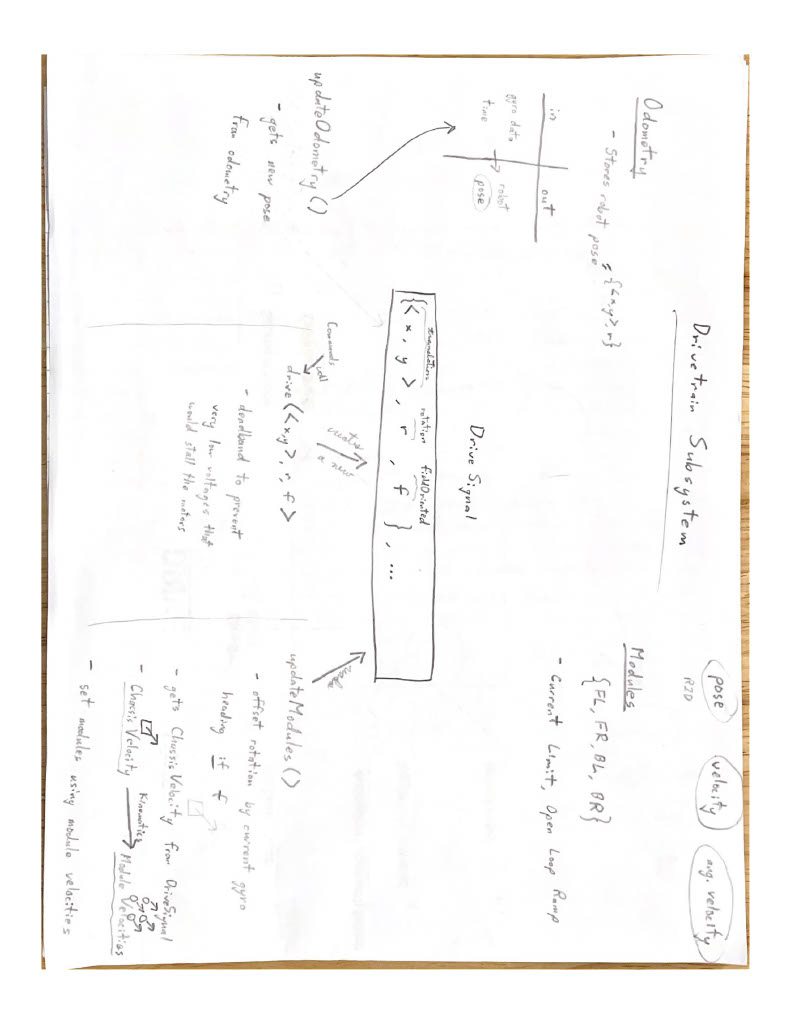 Drivetrain Subsystem
pose
R2D
velocity
ang. velocity
Odometry
- Stores robot pose = {<x,y>, r}
in
out
gyro data
time
robot
pose
Modules
{FL, FR, BL, BR}
- Current Limit, Open Loop Ramp
Drive Signal
translation rotation fieldOriented
{< x, y >, r, f }, ...
creates
a new
reads
Commands
call
updateOdometry()
- gets new pose
from odometry
drive(<x,y>, r, f >
- deadband to prevent
very low voltages that
would stall the motors
updateModules()
- offset rotation by current gyro
heading if f
- gets Chassis Velocity from DriveSignal
- Chassis Velocity Kinematics Module Velocities
- set modules using module velocities